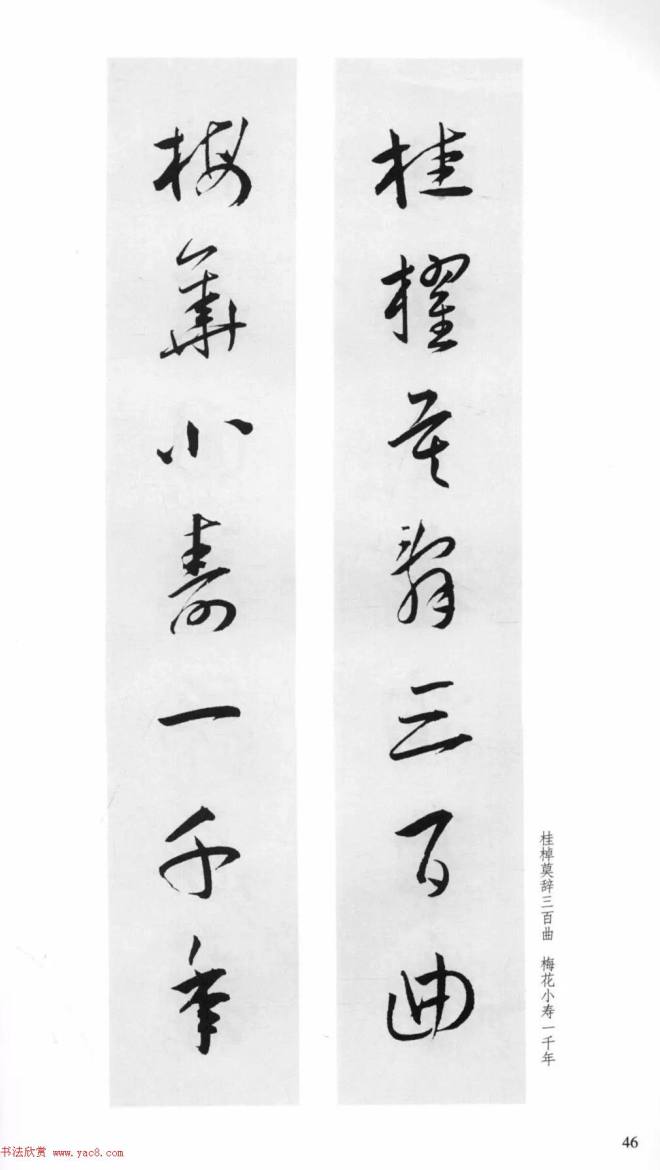 桂櫂莫辭三百曲
梅華小壽一千年
桂棹莫辞三百曲　梅花小寿一千年
46
书法欣赏 www.yac8.com